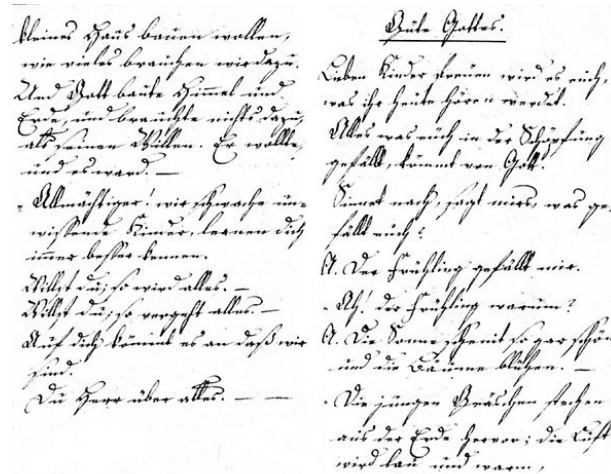 kleines Haus bauen wollen,
wie vieles brauchen wir dazu.
Und Gott baute Himmel und
Erde, und brauchte nichts dazu,
als seinen Willen. Er wollte,
und es ward. —
„ Allmächtiger! wir schwache un-
wissende Kinder, lernen dich
immer besser kennen.
Willst du, so wird alles. —
Willst du, so vergeht alles. —
Auf dich kömmt es an daß wir
sind.
Du Herr über alles. — —
Güte Gottes.
Lieben Kinder freuen wird es euch,
was ihr heute hören werdet.
Alles was euch in der Schöpfung
gefällt, kömmt von Gott.
Sinnet nach, sagt mirs, was ge-
fällt euch?
A. Der Frühling gefällt mir.
- Ah! der Frühling warum?
A. Die Sonne scheint so gar schön
und die Bäume blühen. —
- Die jungen Gräschen stechen
aus der Erde hervor; die Luft
wird lau und warm,